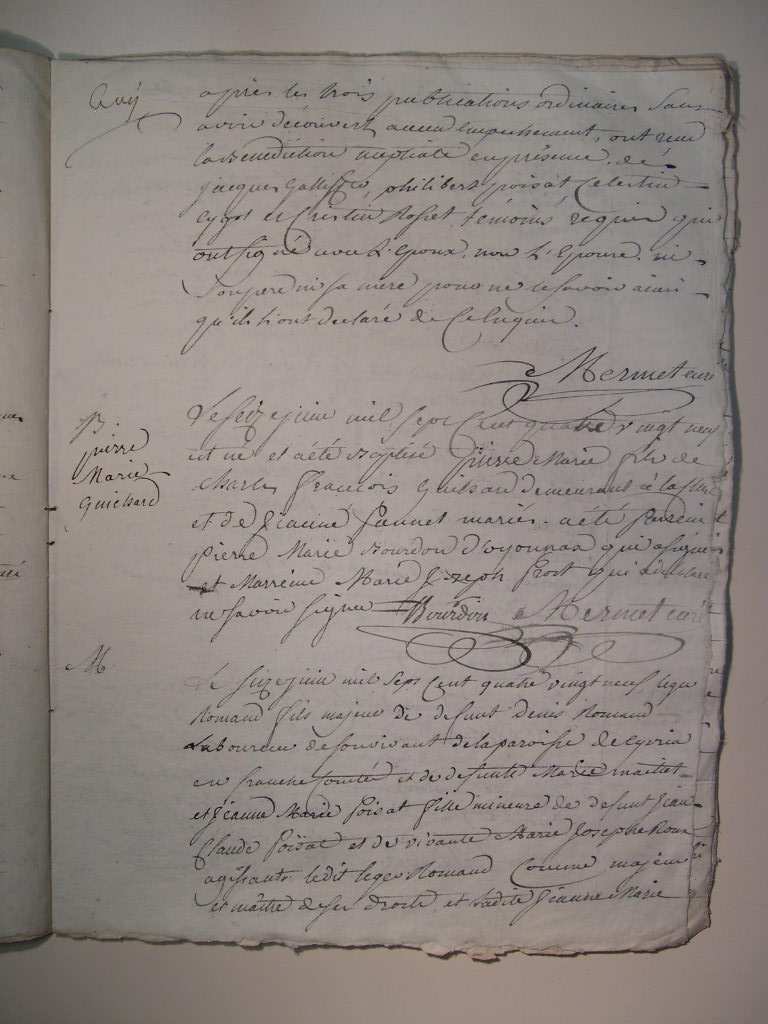 après les trois publications ordinaires Sans
avoir découvert aucun Empechement, ont recu
la Benediction nuptiale en présence de
jacques philibert poisat Celestin
et Cristin Rosset témoins requis qui
ont signé avec L'Epoux, non L'Epouse ni
Son pere ni sa mere pour ne le savoir ainsi
qu'ils l'ont declaré de Ce Enquis.
Mermet curé
B.
pierre
Marie
Guichard
Le Seize juin mil Sept Cent quatre vingt neuf
est né et a été Baptisé pierre Marie fils de
Charles françois Guichard demeurant à
et de mariés a été Parrein
pierre Marie Bourdon d'oyonnax qui a signé
et Marreine Marie Joseph prost qui a déclaré
ne Savoir Signer Bourdon Mermet curé
M
Le Seize juin mil Sept Cent quatre vingt neuf leger
Romand fils majeur de defunt Denis Romand
Laboureur de Son vivant de la paroisse de Cyria
en franche Comté et de defunte Marie maillet
et Jeanne Marie poisat fille mineure de defunt Jean
Claude poisat et de vivante Marie Josephe
agissants ledit leger Romand Comme majeur
et maître de Ses droits et ladite Jeanne Marie